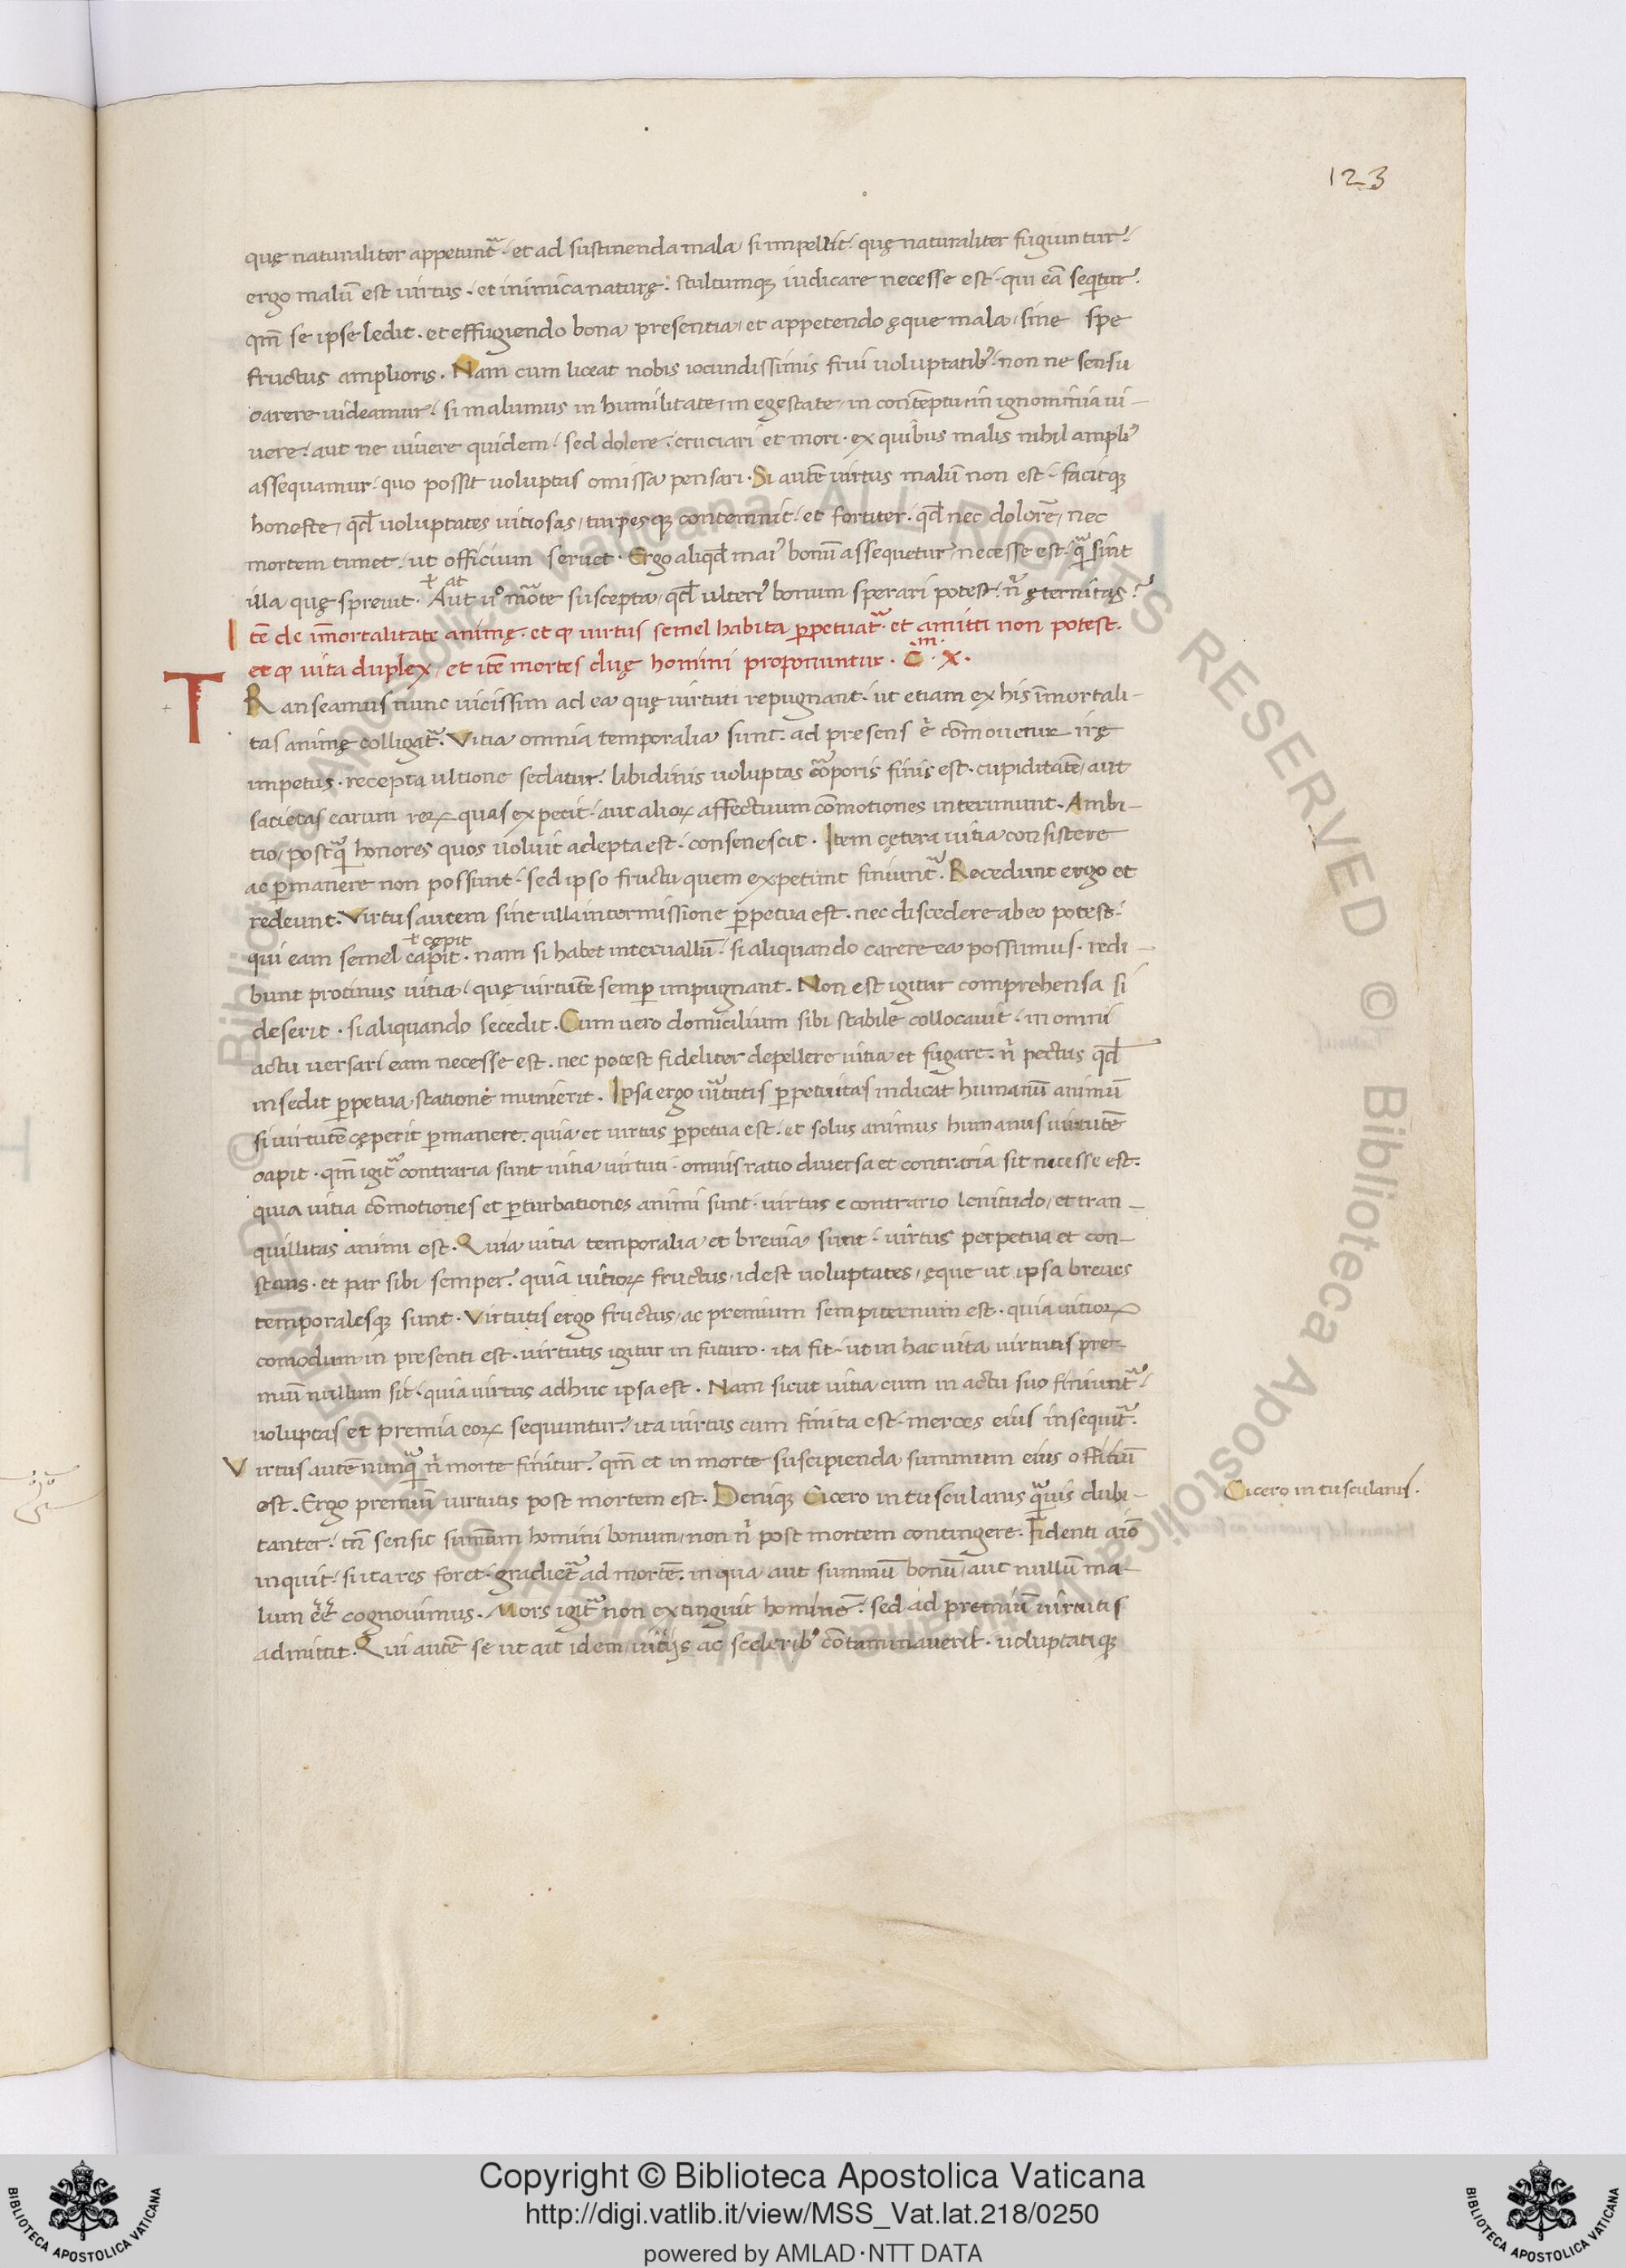 123
quę naturaliter appetunt᷑· et ad sustinenda mala si impellit· quę naturaliter fugiuntur?
ergo malū est uirtus· et inimica naturę: stultumq; iudicare necesse est· qui eā seqitur.
qm̄ se ipse ledit· et effugiendo bona presentia, et appetendo ęque mala, sine spe
fructus amplioris. Nam cum liceat nobis iocundissimis frui uoluptatib᾽· non ne sensu
carere uideamur· si malumus in humilitate, in egestate, in contēptu, in ignominia ui-
uere· aut ne uiuere quidem· sed dolere, cruciari et mori· ex quibus malis nihil ampli᾽
assequamur· quo possit uoluptas omissa pensari· Si autē uirtus malū non est· facitq;
honeste, qd̄ uoluptates uitiosas, turpesq; contemnit· et fortiter· qd̄ nec dolorē, nec
mortem timet· ut officium seruet· Ergo aliqd̄ mai᾽ bonū assequetur necesse est· q̃ sint
ł at
illa quę spreuit· Aut uº mõrte suscepta, qd̄ ulteri᾽ bonum sperari potest· ñ ęternitas?
Itē de īmortalitate animę· et ꝙ uirtus semel habita ꝑpetuat᷑· et amitti non potest.
et ꝙ uita duplex, et itē mortes duę homini proponuntur· C̄m· X·
TRanseamus nunc uicissim ad ea quę uirtuti repugnant· ut etiam ex his īmortali-
tas animę colligat᷑. Vitia omnia temporalia sunt· ad presens .n. cōmouetur irę
impetus· recepta ultione sedatur· libidinis uoluptas corporis finis est· cupiditatē, aut
sacietas earum reꝝ quas expetit· aut alioꝝ affectuum cōmotiones interimunt· Ambi-
tio, postq̃ honores quos uoluit adepta est· consenescit· Item cętera uitia consistere
ac ꝑmanere non possunt· sed ipso fructu quem expetunt finiunt᷑. Recedunt ergo et
redeunt. Virtus autem sine ulla intermissione ꝑpetua est· nec discedere ab eo potest·
ł cępit
qui eam semel capit· nam si habet interuallū· si aliquando carere ea possumus· redi-
bunt protinus uitia, quę uirtutē semꝑ impugnant. Non est igitur comprehensa si
deserit· si aliquando secedit. Cum uero domicilium sibi stabile collocauit· in omni
actu uersari eam necesse est· nec potest fideliter depellere uitia et fugare· ñ pectus qd̄
insedit ꝑpetua statione munierit. Ipsa ergo uirtutis ꝑpetuitas indicat humanū animū
si uirtutē cęperit ꝑmanere· quia et uirtus ꝑpetua est· et solus animus humanus uirtutē
capit· qm̄ igit᷑ contraria sunt uitia uirtuti· omnis ratio diuersa et contraria sit necesse est.
quia uitia cōmotiones et ꝑturbationes animi sunt· uirtus e contrario lenitudo, et tran-
quillitas animi est. Quia uitia temporalia et breuia sunt· uirtus perpetua et con-
stans· et par sibi semper· quia uitioꝝ fructus, idest uoluptates, ęque ut ipsa breues
temporalesq; sunt· Virtutis ergo fructus, ac premium sempiternum est· quia uitioꝝ
comodum in presenti est· uirtutis igitur in futuro· ita fit, ut in hac uita uirtutis pre-
miū nullum sit· quia uirtus adhuc ipsa est. Nam sicut uitia cum in actu suo finiunt᷑·
uoluptas et premia eoꝝ sequuntur· ita uirtus cum finita est· merces eius insequit᷑.
Virtus autē nunq̃ ñ morte finitur· qm̄ et in morte suscipienda summum eius offitiū
est. Ergo premiū uirtutis post mortem est. Deniq; Cicero in tusculanis q̃uis dubi-
Cicero in tusculanis.
tanter· tn̄ sensit summum homini bonum, non ñ post mortem contingere. Fidenti aīo
inquit· si ita res foret· gradiet᷑ ad mortē· in qua aut summū bonū, aut nullū ma-
lum ēē cognouimus. Mors igit᷑ non extinguit hominē· sed ad premiū uirtutis
admittit. Qui autē se ut ait idem, uitijs ac sceleribꝰ cōtaminauerit· uoluptatiq;
Copyright © Biblioteca Apostolica Vaticana
http://digi.vatlib.it/view/MSS_Vat.lat.218/0250
powered by AMLAD·NTT DATA